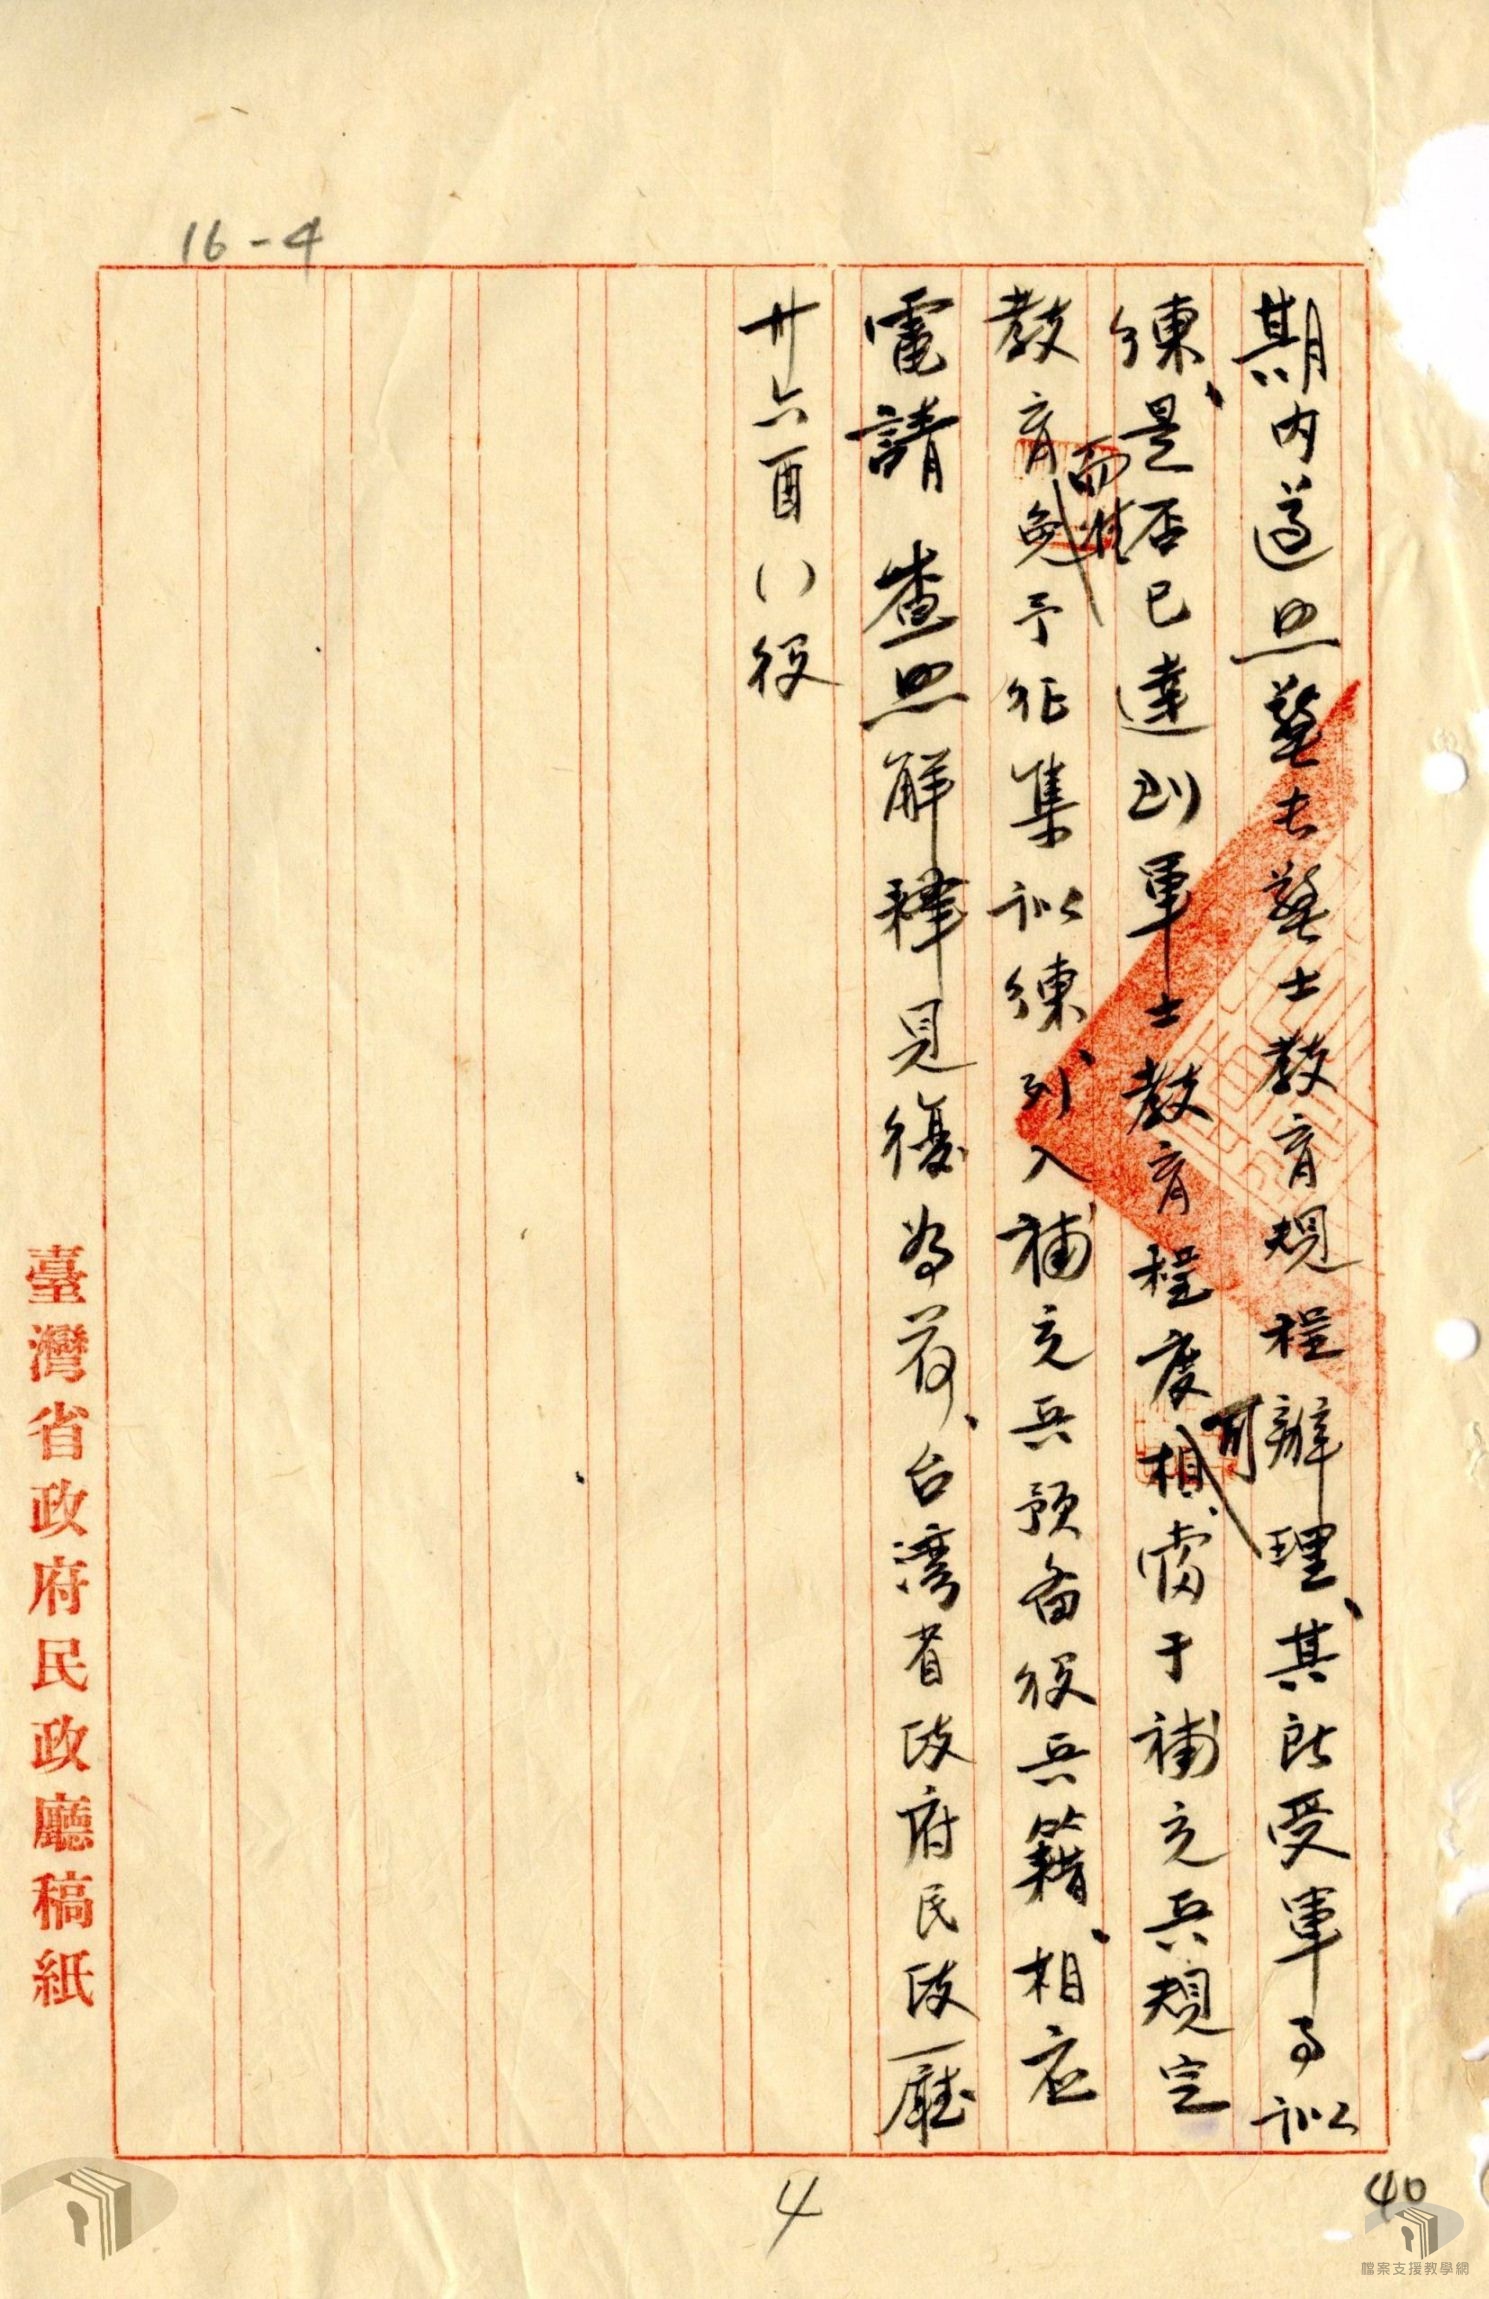 16-4
期内遵照警長警士教育規程辦理、其所受軍事訓
練、是否已達到軍士教育程度可相當于補充兵規定
教育而准免予征集訓練、列入補充兵預备役兵籍、相应
電請 查照解釋見復為荷、台湾省政府民政廳
卅六酉()役
臺灣省政府民政廳稿紙
4
40
檔案支援教學網